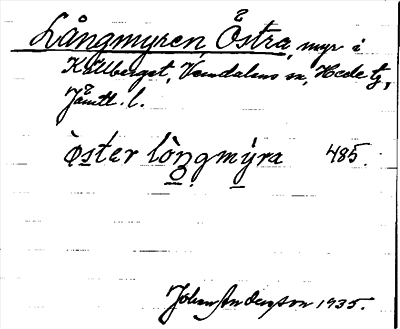 Långmyren, Östra, myr i
Källberget, Vemdalens sn, Hede tg,
Jämtl. l.
òster lòngmýra 485.
Johan Anderson 1935.